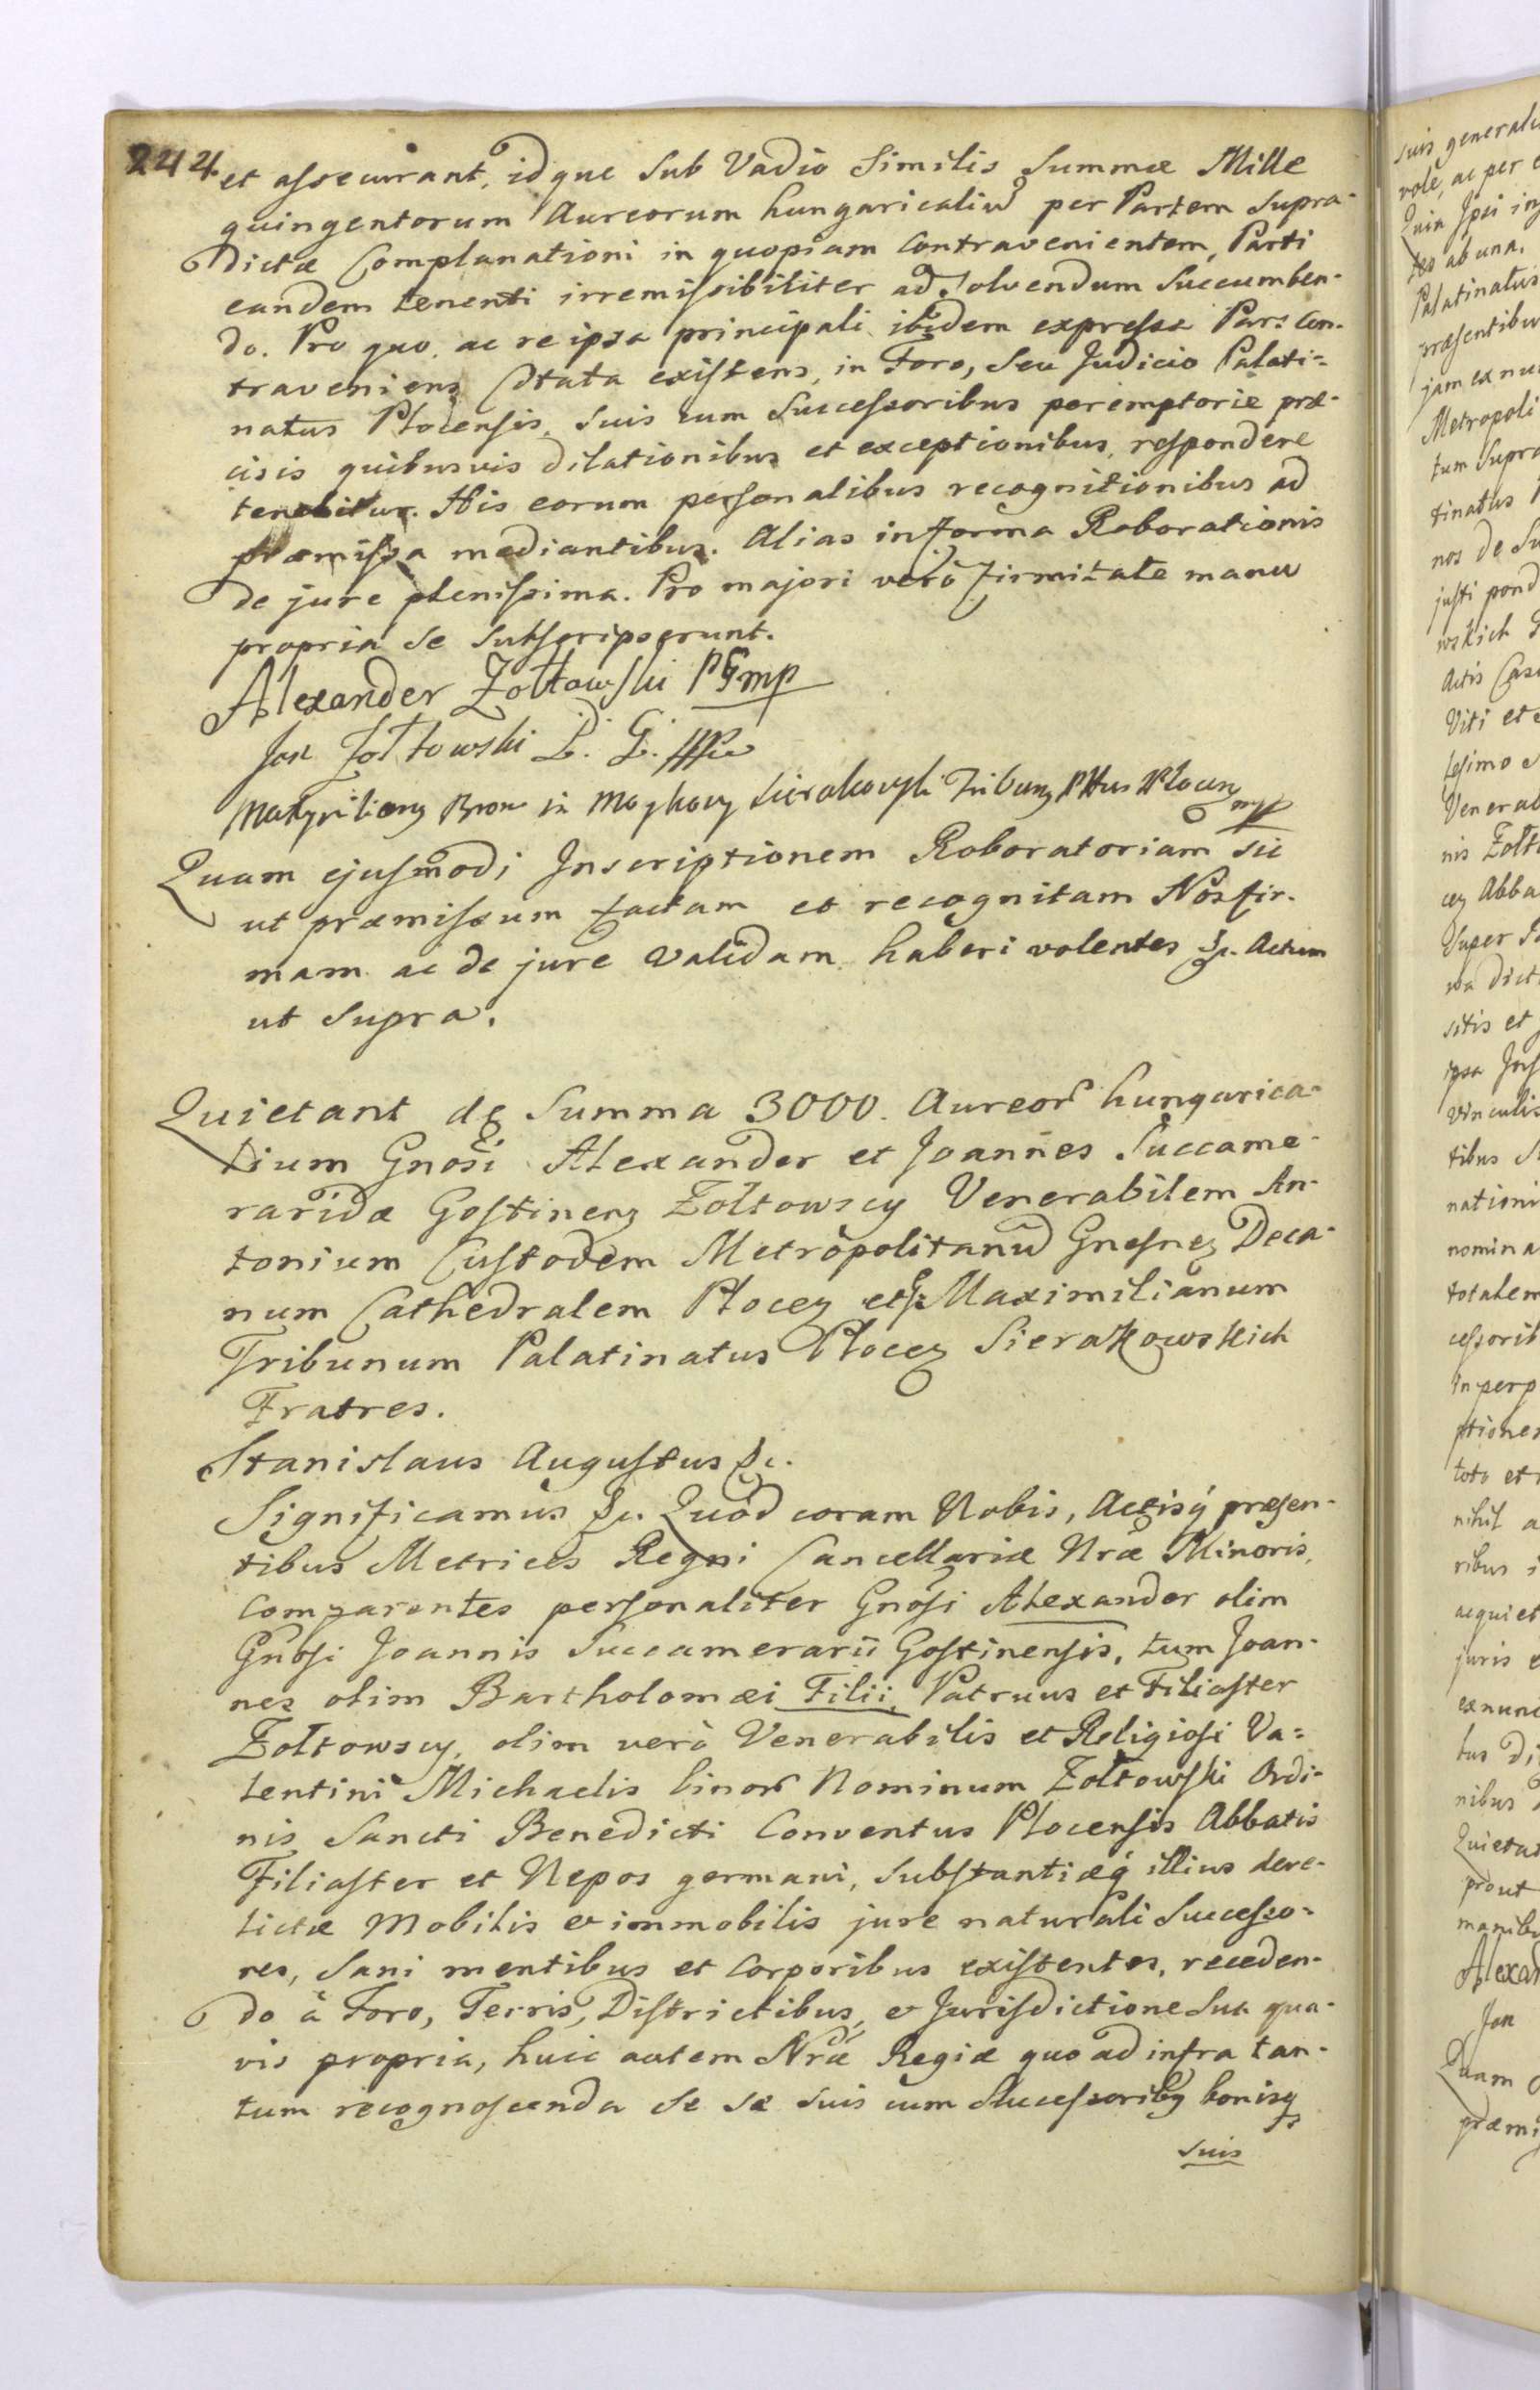 244
et assecurant, idque Sub Vadio Similis Summæ Mille
quingentorum Aureorum hungaricaliũ per Partem Supra-
dictæ Complanationi in quopiam Contravenientem, Parti
eandem tenenti irremissibiliter ad solvendum Succumben-
do. Pro quo, ac re ipsa principali ibidem expressa Pars Con-
traveniens Citata existens, in Foro, Seu Judicio Palati-
natus Plocensis, Suis cum Successoribus peremptorie præ-
cisis quibusvis dilationibus et exceptionibus, respondere
tenebitur. His eorum personalibus recognitionibus ad
præmissa mediantibus. Alias in forma Roborationis
de jure plenissima. Pro majori verò firmitate manu
propria Se Subscripserunt.
Alexander Żołtowski PGmp
Jan Żołtowski P. G. mp
Maxymilian Bron in Sierakowski Tribung Pttus Plocen mp
Quam ejusmodi Inscriptionem Roboratoriam Sic
ut præmissum factam et recognitam Nos fir-
mam ac de jure validam haberi volentes &c. Actum
ut Supra.
Quietant de Summa 3000. Aureor hungarica-
lium Gnosi Alexander et Joannes Succame-
raridæ Gostinens Żołtowscy Venerabilem An-
tonium Custodem Metropolitanũ Gnesnes Deca-
num Cathedralem Plocen et G Maximilianum
Tribunum Palatinatus Plocen Sierakowskich
Fratres.
Stanislaus Augustus &c.
Significamus &c. Quod coram Nobis, Actisq́ præsen-
tibus Metrices Regni Cancellariæ Nræ Minoris,
Comparentes personaliter Gnosi Alexander olim
Gnosi Joannis Succamerarii Gostinensis, tum Joan-
nes olim Bartholomæi Filii, Patruus et Filiaster
Żołtowscy, olim verò Venerabilis et Religiosi Va-
lentini Michaelis binor Nominum Żołtowski Ordi-
nis Sancti Benedicti Conventus Plocensis Abbatis
Filiaster et Nepos germani, Substantiæq́ illius dere-
lictæ Mobilis et immobilis jure naturali Successo-
res, Sani mentibus et Corporibus existentes, receden-
do à Foro, Terris, Districtibus, et Jurisdictione Sua qua-
vis propria, huic autem Nræ Regiæ quo ad infra tan-
tum recognoscenda Se Sæ Suis cum Successoribq bonisq
Suis